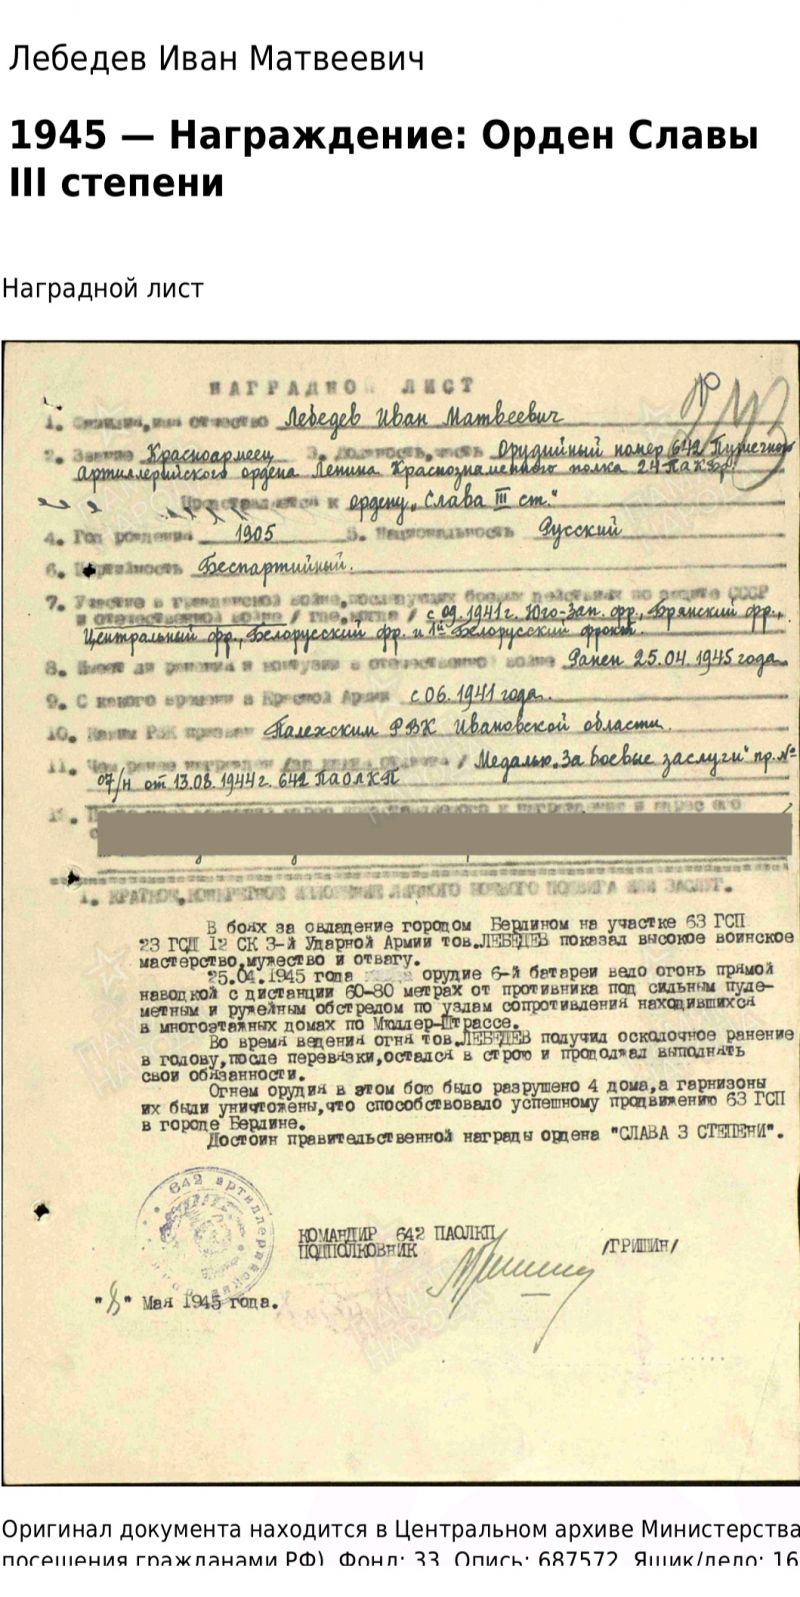 Лебедев Иван Матвеевич
1945 — Награждение: Орден Славы
III степени
Наградной лист
НАГРАДНОЙ ЛИСТ
1. Фамилия, имя отчество Лебедев Иван Матвеевич
2. Звание Красноармеец 3. Должность, часть Орудийный номер 642 Пушечного
артиллерийского ордена Ленина Краснознаменного полка
Представляется к ордену „Слава III ст."
4. Год рождения 1905 5. Национальность Русский
6. Партийность Беспартийный.
7. Участие в гражданской войне, последующих боевых действиях по защите СССР
и отечественной войне / где, когда / с 09.1941г. Юго-Зап. фр., Брянский фр.,
Центральный фр., Белорусский фр. и 1й Белорусский фронт.
8. Имеет ли ранения и контузии в отечественной войне Ранен 25.04.1945 года.
9. С какого времени в Красной Армии с 06.1941 года.
10. Каким РВК призван Палехским РВК Ивановской области.
11. Чем ранее награжден / Медалью „За боевые заслуги" пр. №
07/н от 13.08.1944г. 642 ПАОЛКП
1. КРАТКОЕ, КОНКРЕТНОЕ ИЗЛОЖЕНИЕ ЛИЧНОГО БОЕВОГО ПОДВИГА ИЛИ ЗАСЛУГ.
В боях за овладение городом Берлином на участке 63 ГСП
23 ГСД 12 СК 3-й Ударной Армии тов.ЛЕБЕДЕВ показал высокое воинское
мастерство,мужество и отвагу.
25.04.1945 года орудие 6-й батареи вело огонь прямой
наводкой с дистанции 60-80 метрах от противника под сильным пуле-
метным и ружейным обстрелом по узлам сопротивления находившихся
в многоэтажных домах по Мюллер-Штрассе.
Во время ведения огня тов.ЛЕБЕДЕВ получил осколочное ранение
в голову,после перевязки,остался в строю и продолжал выполнять
свои обязанности.
Огнем орудия в этом бою было разрушено 4 дома,а гарнизоны
их были уничтожены,что способствовало успешному продвижению 63 ГСП
в городе Берлине.
Достоин правительственной награды ордена "СЛАВА 3 СТЕПЕНИ".
642 артиллерийский
КОМАНДИР 642 ПАОЛКП
ПОДПОЛКОВНИК /ГРИШИН/
"8" Мая 1945 года.
Оригинал документа находится в Центральном архиве Министерства
посещения гражданами РФ). Фонд: 33. Опись: 687572. Ящик/дело: 16